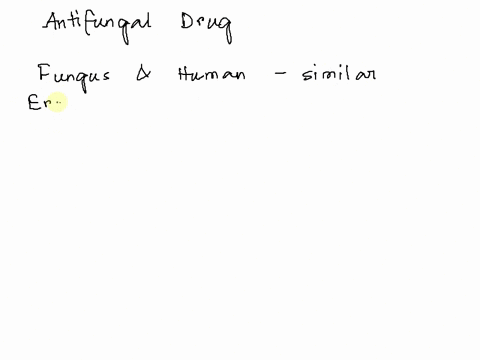 Antifungal Drug
Fungus & Human - similar
Er